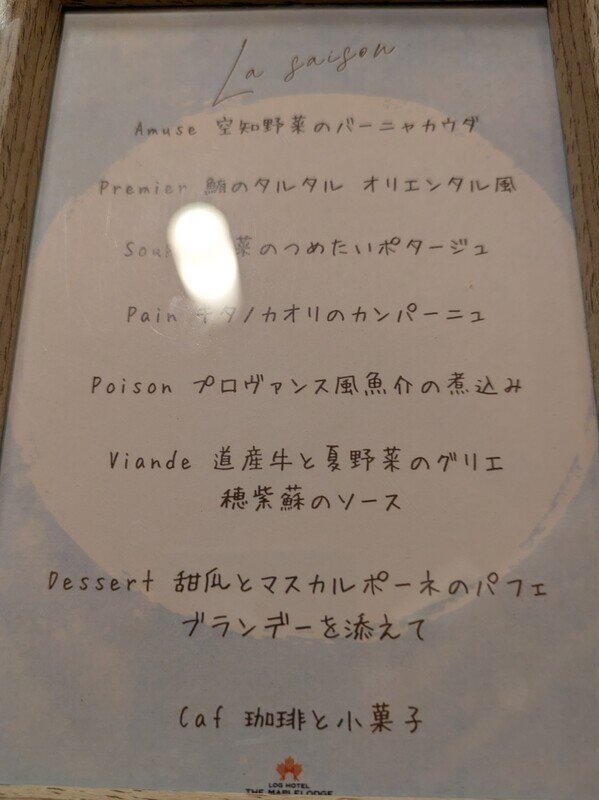 La saison
Amuse 空知野菜のバーニャカウダ
Premier 鮪のタルタル オリエンタル風
菜のつめたいポタージュ
Pain キタノカオリのカンパーニュ
Poison プロヴァンス風魚介の煮込み
Viande 道産牛と夏野菜のグリエ
穂紫蘇のソース
Dessert 甜瓜とマスカルポーネのパフェ
ブランデーを添えて
Caf 珈琲と小菓子
LOG HOTEL
THE MAPLELODGE